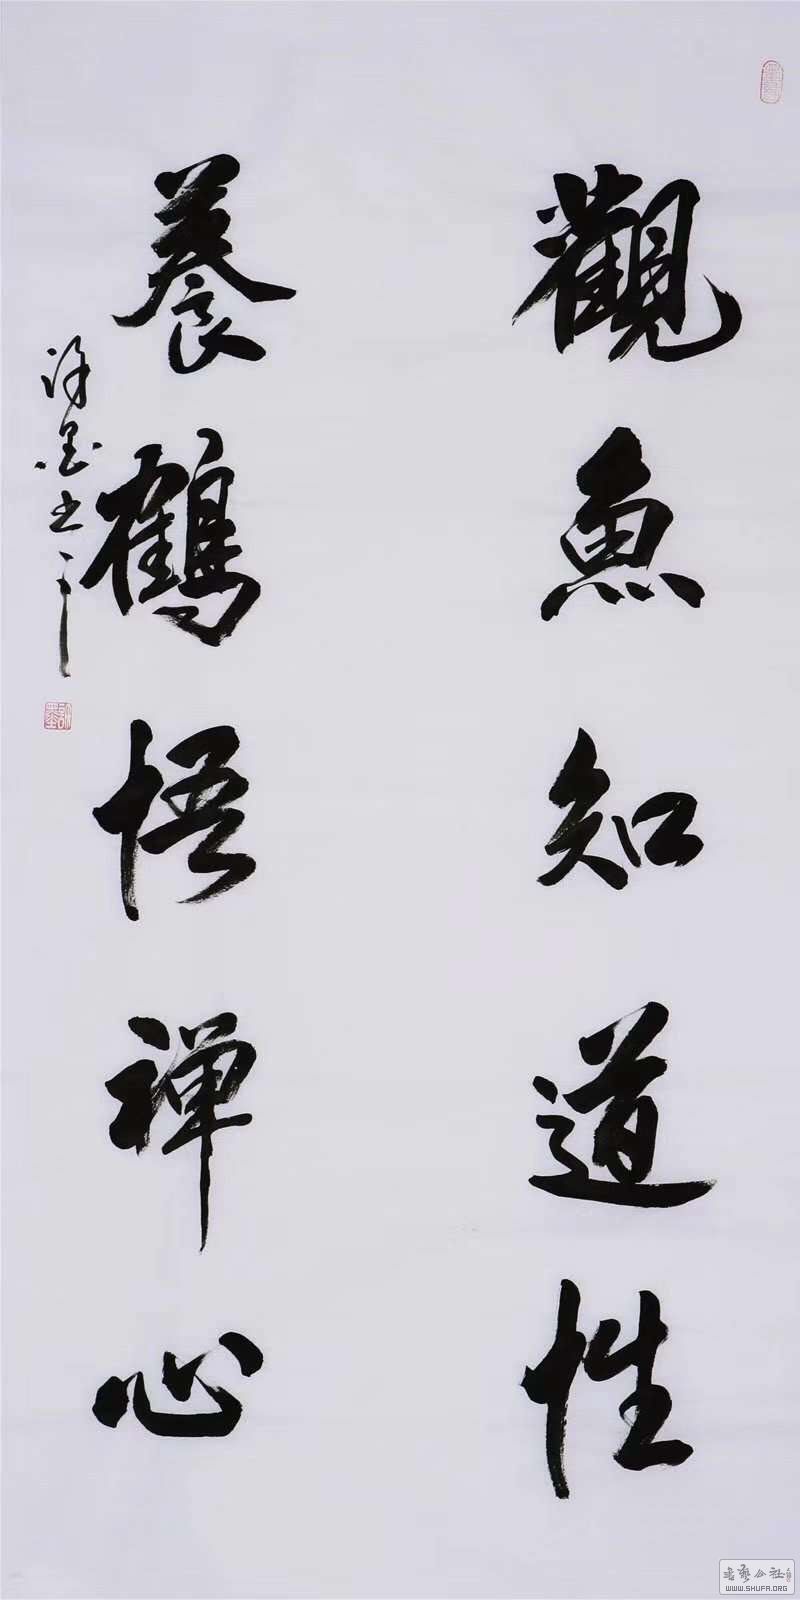 觀魚知道性
養鶴悟禅心
許墨書
書藝公社
WWW.SHUFA.ORG